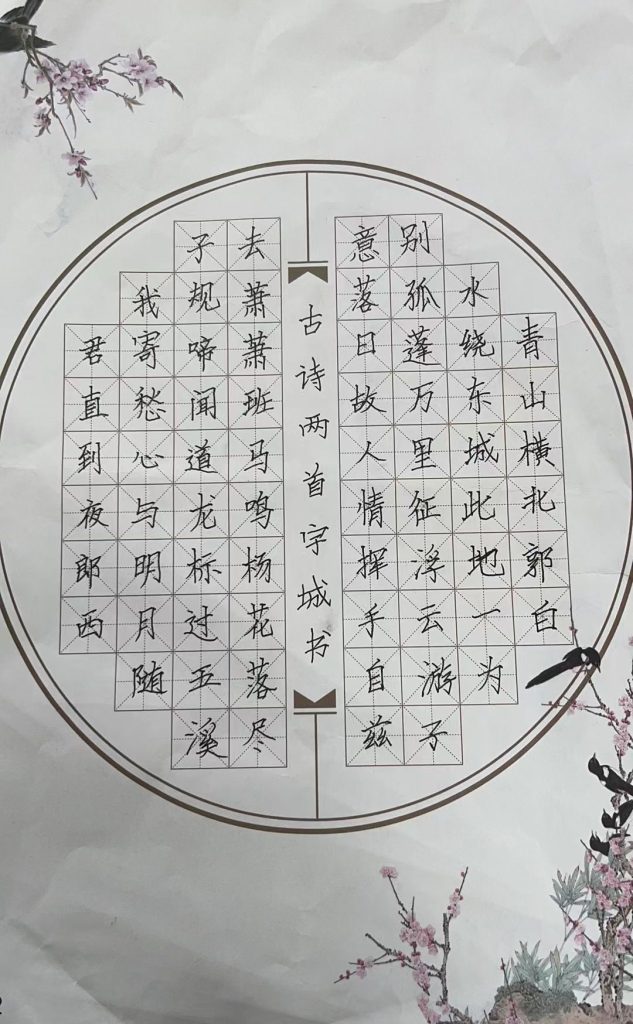 青山横北郭白
水绕东城此地一为
别孤蓬万里征浮云游子
意落日故人情挥手自兹
古诗两首字城书
去萧萧班马鸣杨花落尽
子规啼闻道龙标过五溪
我寄愁心与明月随
君直到夜郎西